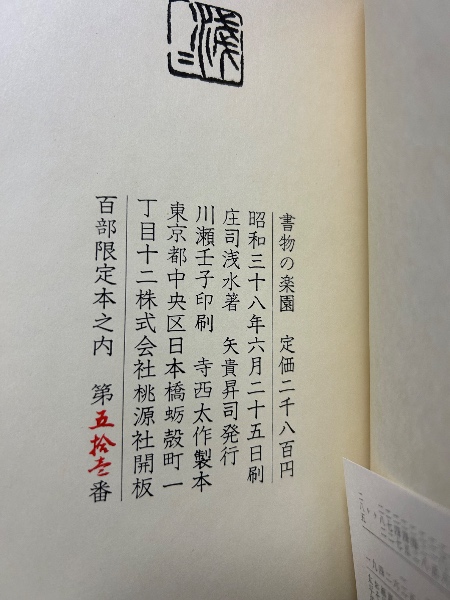 書物の楽園 定価二千八百円
昭和三十八年六月二十五日刷
庄司浅水著 矢貴昇司発行
川瀬壬子印刷 寺西太作製本
東京都中央区日本橋蛎殻町一
丁目十二株式会社桃源社開板
百部限定本之内 第五拾壱番